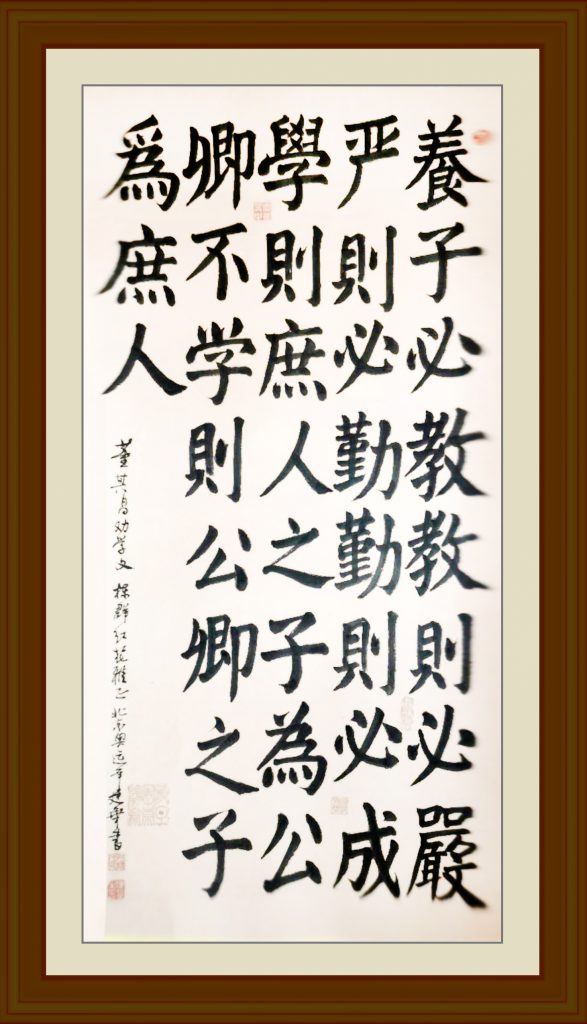 養子必教教則必嚴
严則必勤勤則必成
學則庶人之子為公
卿不学則公卿之子
爲庶人
董其昌劝学文 群红 雅正 北京奥运年建 書